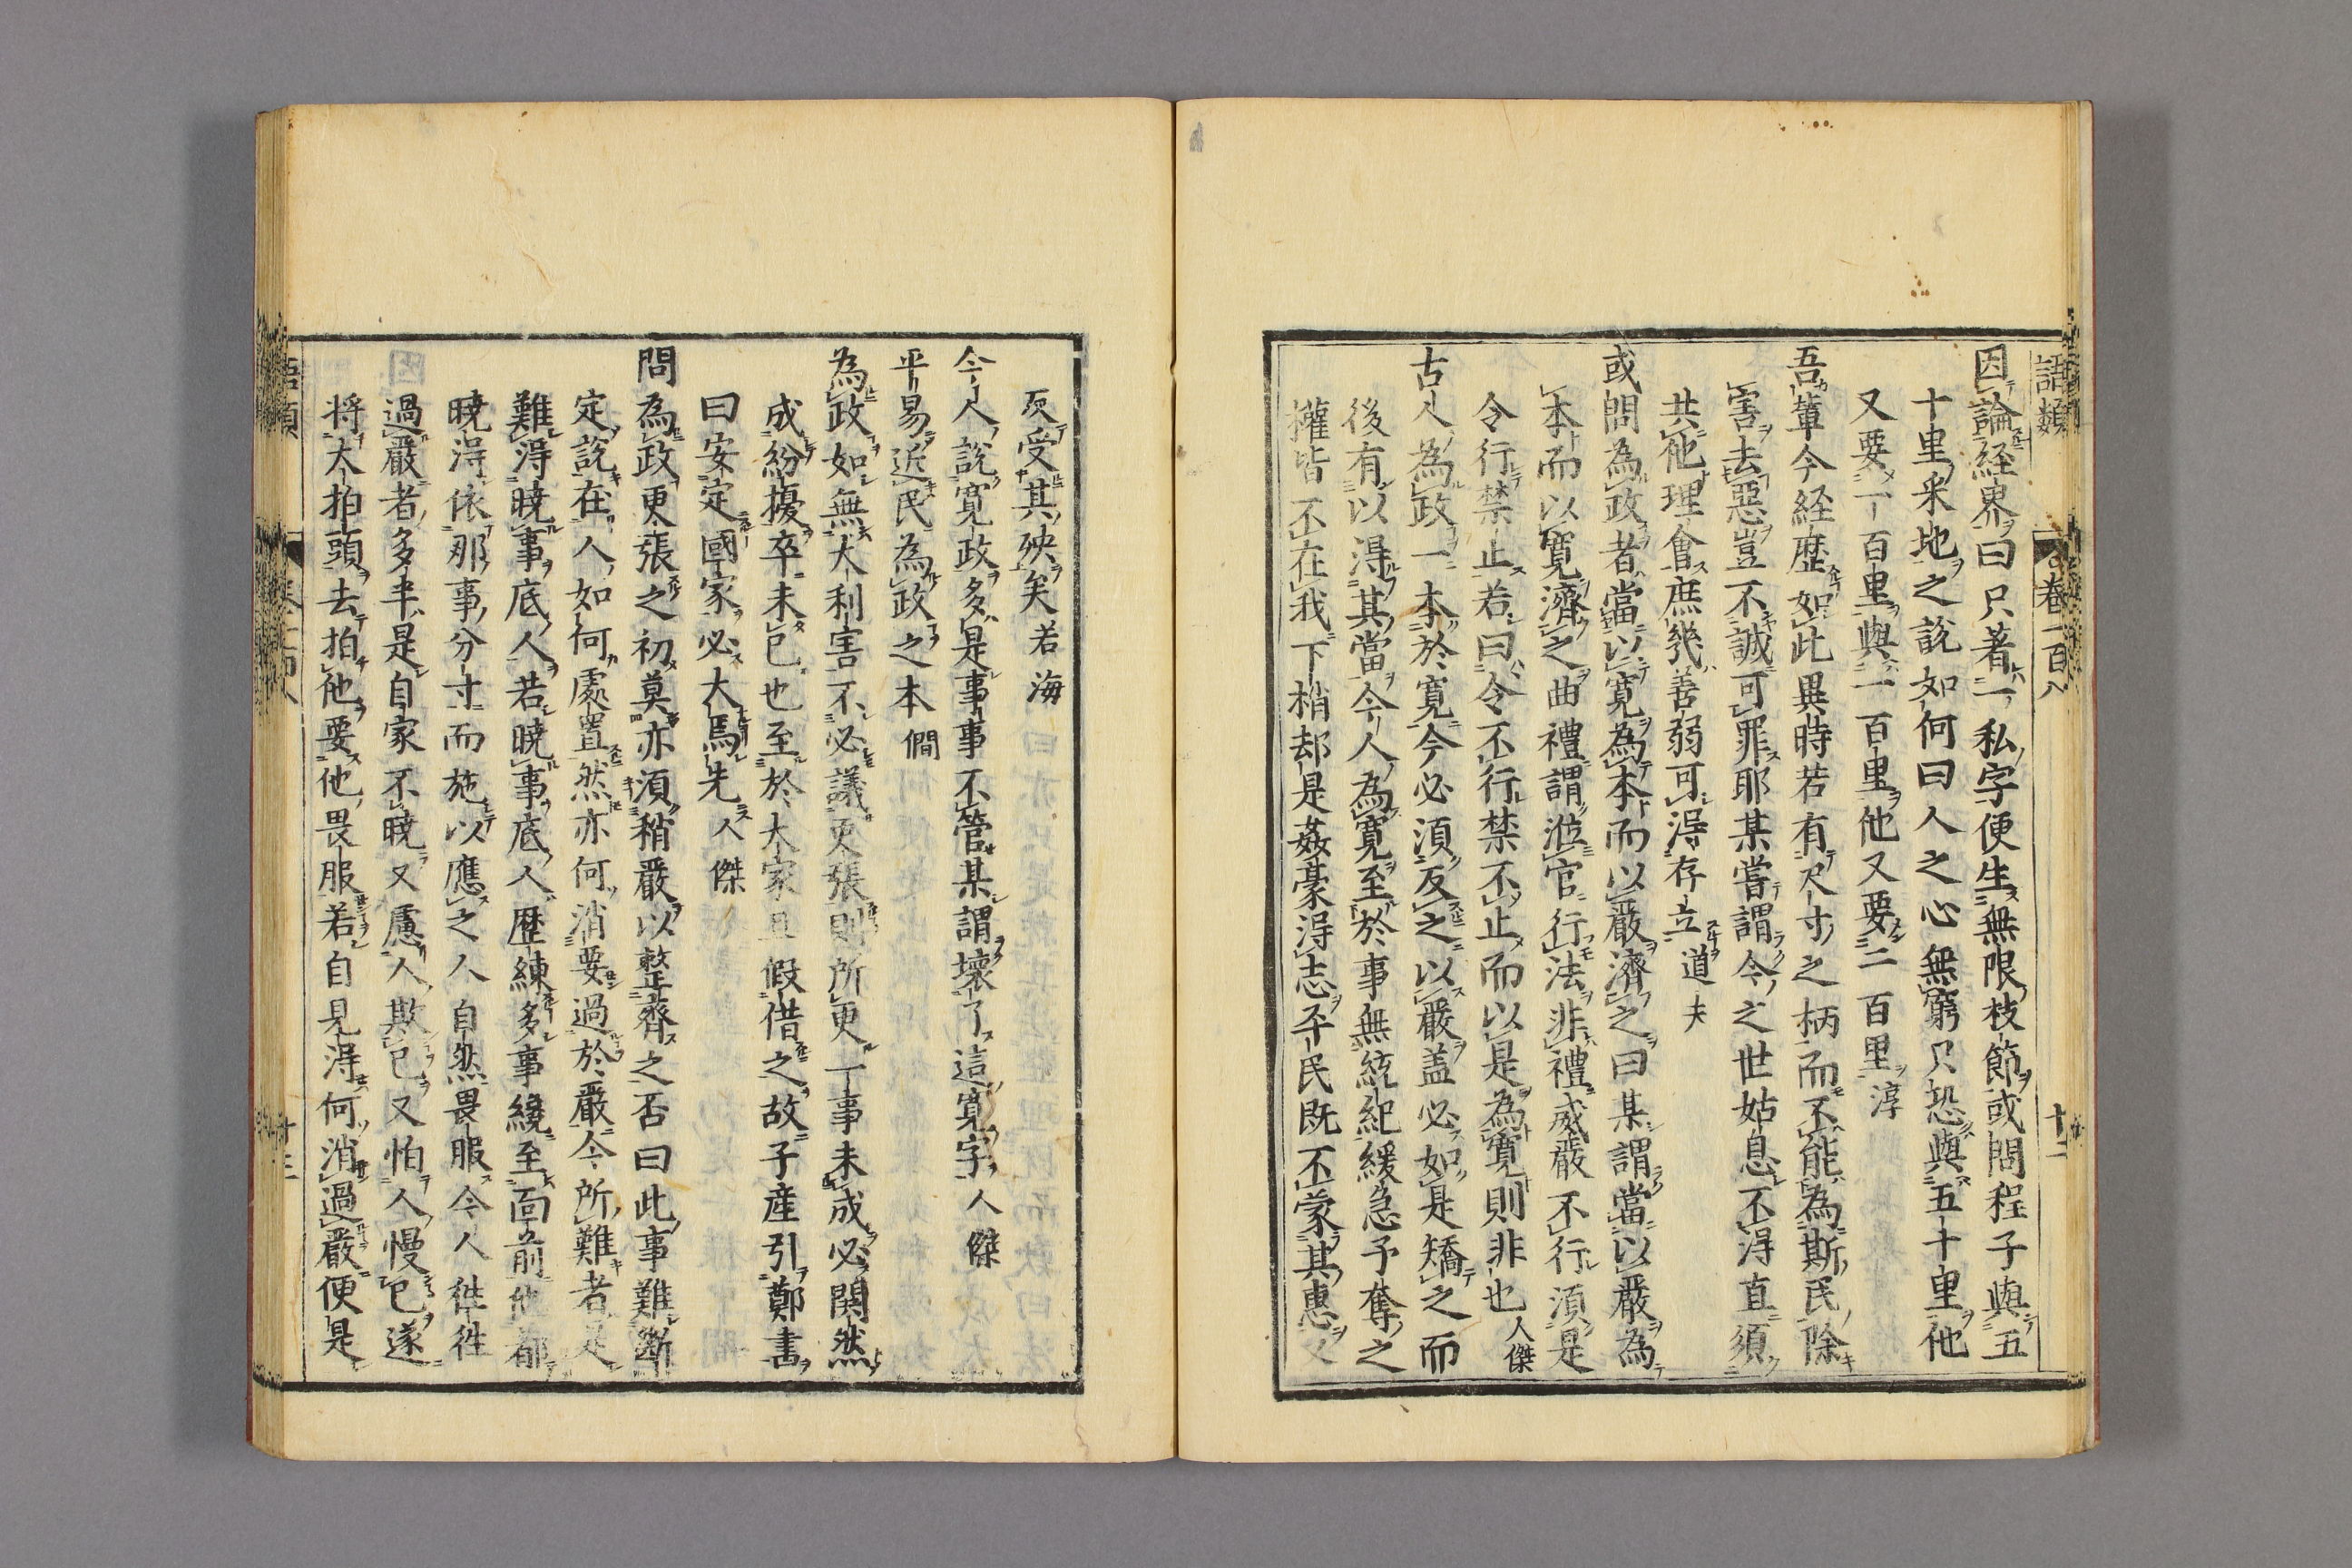 語類
卷一百八
十二
因論経界曰只著一私字便生無限枝節或問程子與五
十里采地之說如何曰人之心無窮只恐與五十里他
又要一百里與一百里他又要二百里淳
吾輩今経歴如此異時若有尺寸之柄而不能為斯民除
害去惡豈不誠可罪耶某嘗謂今之世姑息不得直須
共他理會庶幾善弱可得存立道夫
或問為政者當以寛為本而以嚴濟之曰某謂當以嚴為
本而以寛濟之曲禮謂涖官行法非禮威嚴不行須是
令行禁止若曰令不行禁不止而以是為寛則非也人傑
古人為政一本於寛今必須反之以嚴盖必如是矯之而
後有以得其當今人為寛至於事無統紀緩急予奪之
權皆不在我下梢却是姦豪得志平民既不蒙其惠又
反受其殃矣若海
今人說寛政多是事事不管某謂壊了這寛字人傑
平易近民為政之本僩
為政如無大利害不必議更張則所更一事未成必関然
成紛擾卒未已也至於大家且假借之故子産引鄭書
曰安定國家必大焉先人傑
問為政更張之初莫亦須稍嚴以整齊之否曰此事難斷
定說在人如何處置然亦何消要過於嚴今所難者是
難得曉事底人若曉事底人歴練多事纔至面前他都
曉得依那事分寸而施以應之人自然畏服今人徃徃
過嚴者多半是自家不曉又慮人欺已又怕人慢已遂
将大拍頭去拍他要他畏服若自見得何消過嚴便是
語類
十三